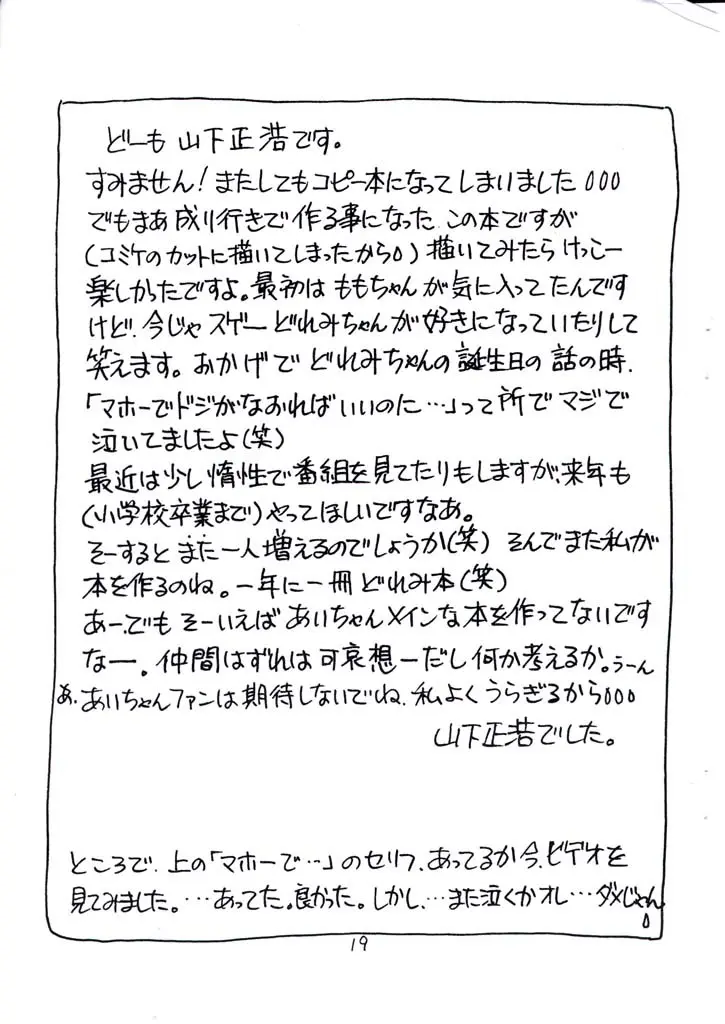 どーも 山下正浩です。
すみません!またしてもコピー本になってしまいました000
でもまあ成り行きで作る事になった この本ですが
(コミケのカットに描いてしまったから0)描いてみたらけっこー
楽しかったですよ。最初は ももちゃんが気に入ってたんです
けど、今じゃスゲーどれみちゃんが好きになっていたりして
笑えます。おかげで どれみちゃんの誕生日の話の時、
「マホーでドジがなおればいいのに…」って所でマジで
泣いてましたよ(笑)
最近は少し惰性で番組を見てたりもしますが、来年も
(小学校卒業まで)やってほしいですなあ。
そーするとまた一人増えるのでしょうか(笑) そんでまた私が
本を作るのね。一年に一冊どれみ本(笑)
あー、でも そーいえば あいちゃんメインな本を作ってないです
なー。仲間はずれは可哀想ーだし何か考えるか。うーん
あ、あいちゃんファンは期待しないでね、私よくうらぎるから000
山下正浩でした。
ところで、上の「マホーで…」のセリフ、あってるか今、ビデオを
見てみました。…あってた。良かった。しかし、…また泣くかオレ…ダメじゃん
0
19